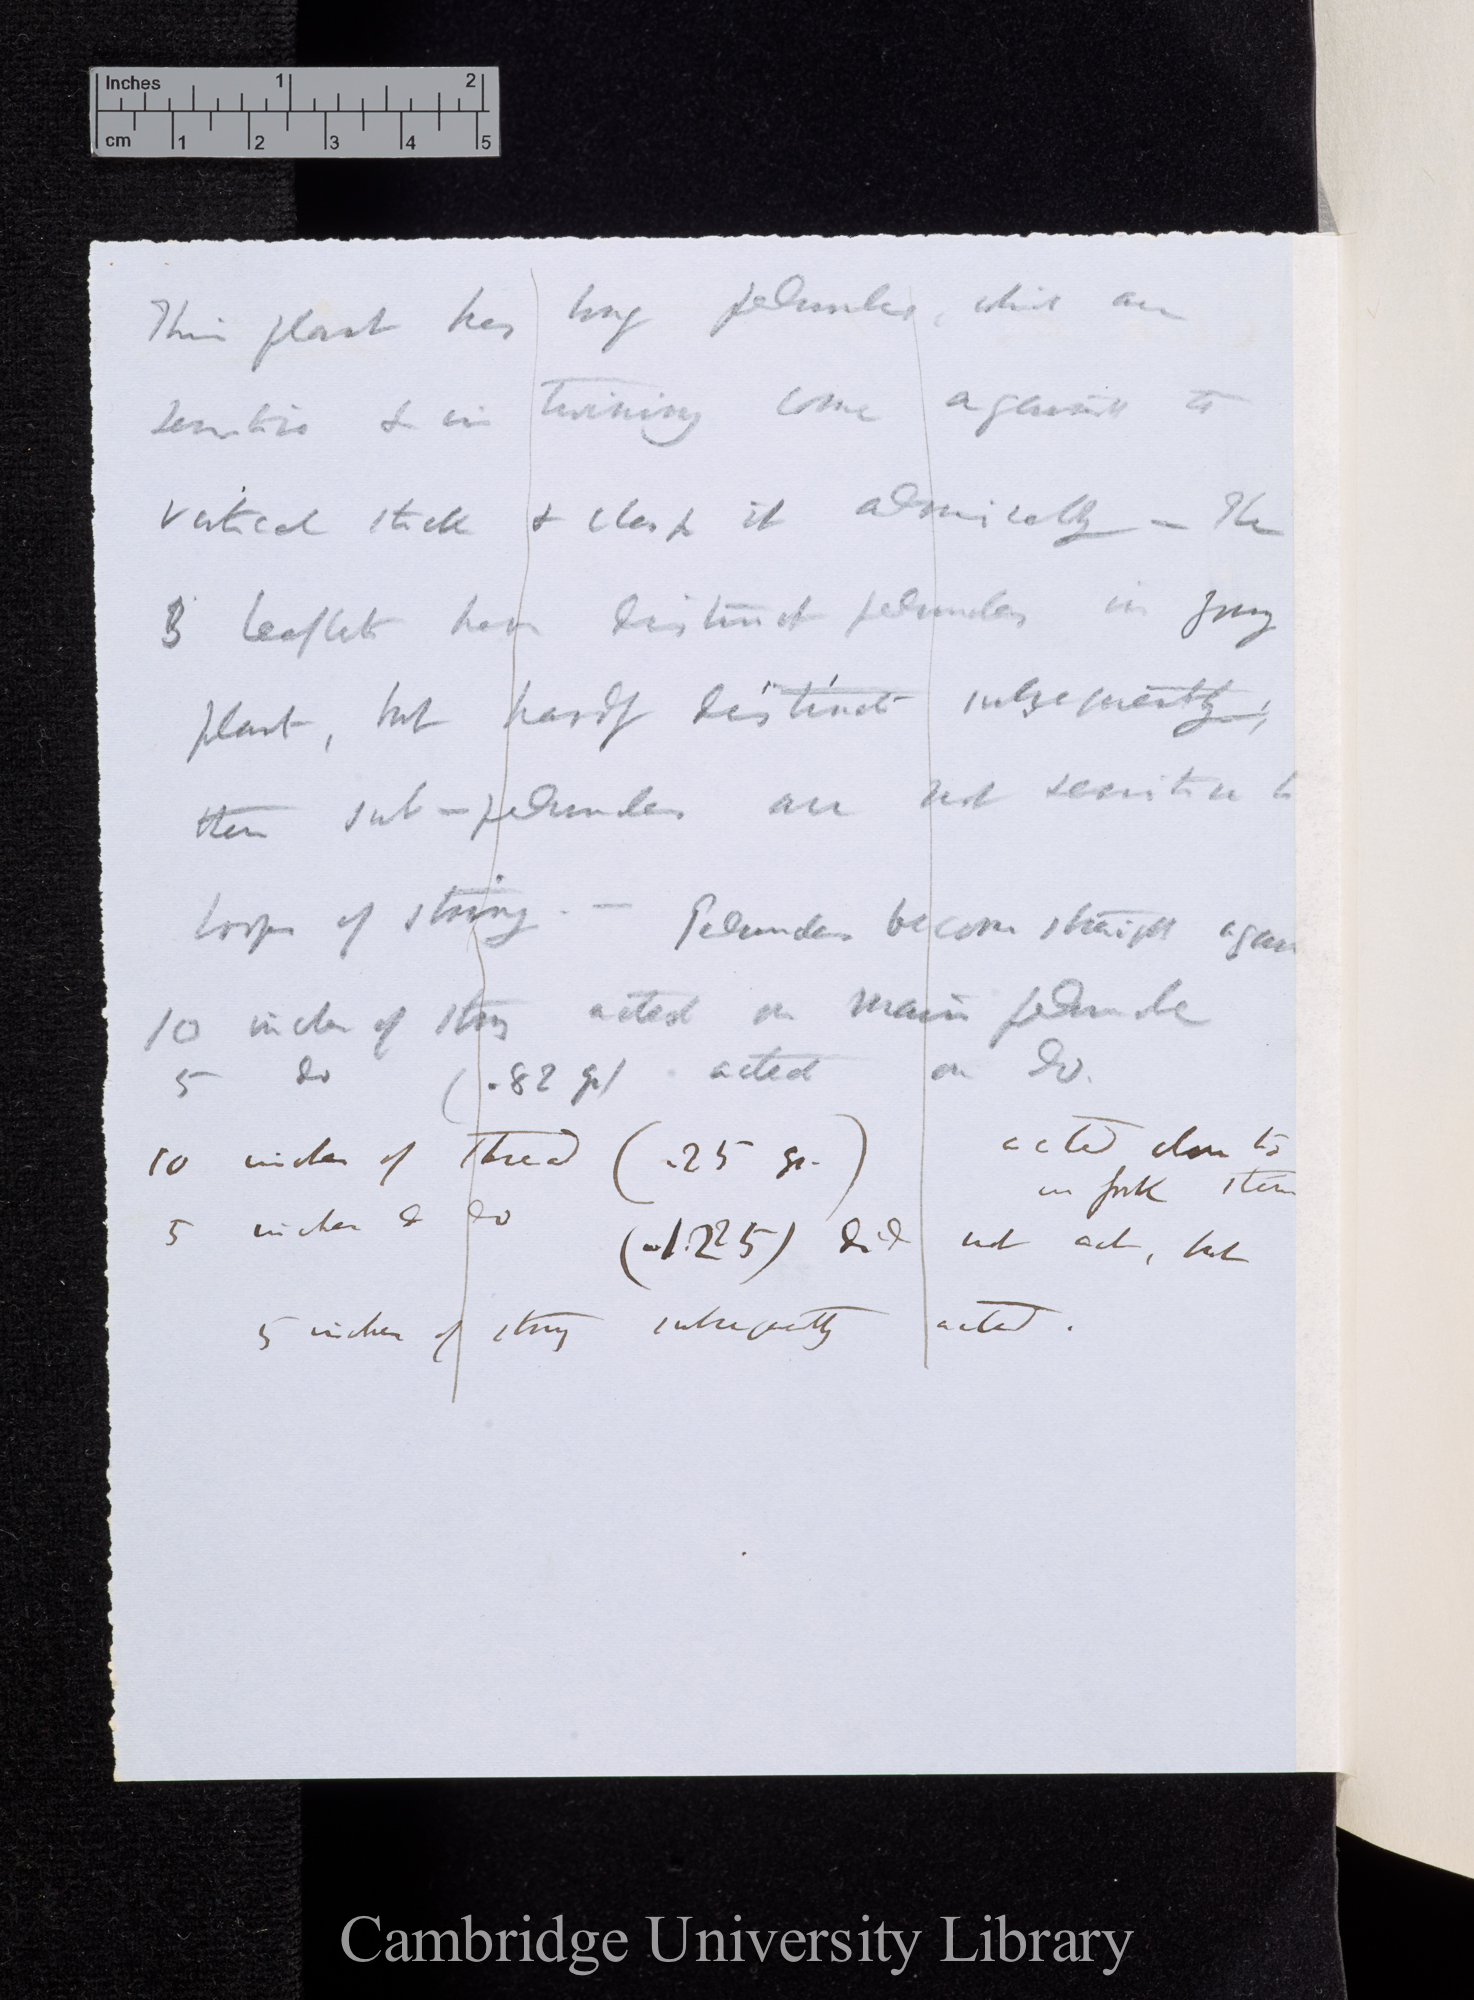 Inches 1 2
cm 1 2 3 4 5
This plant has long peduncles, which are
sensitive & in twining come against to
vertical stick & clasp it admirably — The
3 leaflets have distinct peduncles in young
plant, but hardly distinct subsequently;
these sub-peduncles are not sensitive to
loops of string. — Peduncles become straight again
10 inches of string acted on main peduncle
5 do (.82 gr) acted on do.
10 inches of thread (.25 gr.) acted close to
in fork stem
5 inches do (.1225) did not act, but
5 inches of string subsequently acted.
Cambridge University Library